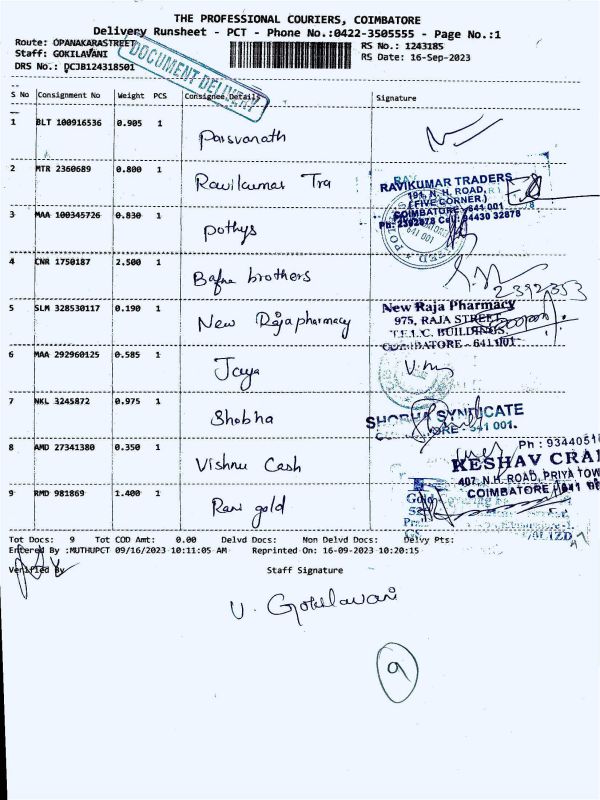 THE PROFESSIONAL COURIERS, COIMBATORE
Delivery Runsheet - PCT - Phone No.:0422-3505555 - Page No.:1
Route: OPANAKARASTREET
RS No.: 1243185
Staff: GOKILAVANI
RS Date: 16-Sep-2023
DRS No.: DCJB124318501
DOCUMENT DELIVERY
S No Consignment No Weight PCS Consignee Details Signature
1 BLT 100916536 0.905 1 Parsvanath
2 MTR 2360689 0.800 1 Ravikumar Tra
RAVIKUMAR TRADERS
191, N. H. ROAD,
(FIVE CORNER.)
COIMBATORE - 641 001
Ph: 2392878 Cell: 94430 32878
3 MAA 100345726 0.830 1 pothys
641 001
4 CNR 1750187 2.500 1 Bafna brothers
2392353
5 SLM 328530117 0.190 1 New Raja pharmacy
New Raja Pharmacy
975, RAJA STREET,
T.E.L.C. BUILDINGS,
COIMBATORE - 641 001
6 MAA 292960125 0.585 1 Jaya
7 NKL 3245872 0.975 1 Shobha
SHOBHA SYNDICATE
COIMBATORE - 641 001.
8 AMD 27341380 0.350 1 Vishnu Cash
Ph : 9344051
KESHAV CRA
407, N.H. ROAD, PRIYA TOW
COIMBATORE 641 0
9 RMD 981869 1.400 1 Ravi gold
Tot Docs: 9 Tot COD Amt: 0.00 Delvd Docs: Non Delvd Docs: Delvy Pts:
Entered By :MUTHUPCT 09/16/2023 10:11:05 AM Reprinted On: 16-09-2023 10:20:15
Verified By Staff Signature
V. Gokilavani
9